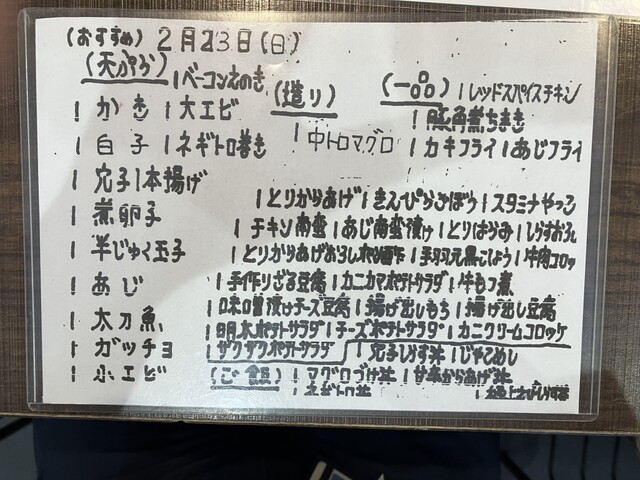 (おすすめ) 2月23日(日)
(天ぷら)
| ベーコンえのき
| かき | 大エビ
| 白子 | ネギトロ巻き
| 穴子1本揚げ
| 煮卵子
| 半じゅく玉子
| あじ
| 太刀魚
| ガッチョ
| 小エビ
(造り)
| 中トロマグロ
(一品) | レッドスパイスチキン
| 豚角煮ちまき
| カキフライ | あじフライ
| とりからあげ | きんぴらごぼう | スタミナやっこ
| チキン南蛮 | あじ南蛮漬け | とりはりみ | しらすおろし
| とりからあげおろしポン酢 | 手羽元黒こしょう | 牛肉コロッケ
| 手作りざる豆腐 | カニカマポテトサラダ | 牛もつ煮
| 味噌漬けチーズ豆腐 | 揚げ出しもち | 揚げ出し豆腐
| 明太ポテトサラダ | チーズポテトサラダ | カニクリームコロッケ
| ザクザクポテトサラダ
(ご飯)
| 穴子しらす丼 | じゃこめし
| マグロづけ丼 | からあげ丼
| ネギトロ丼